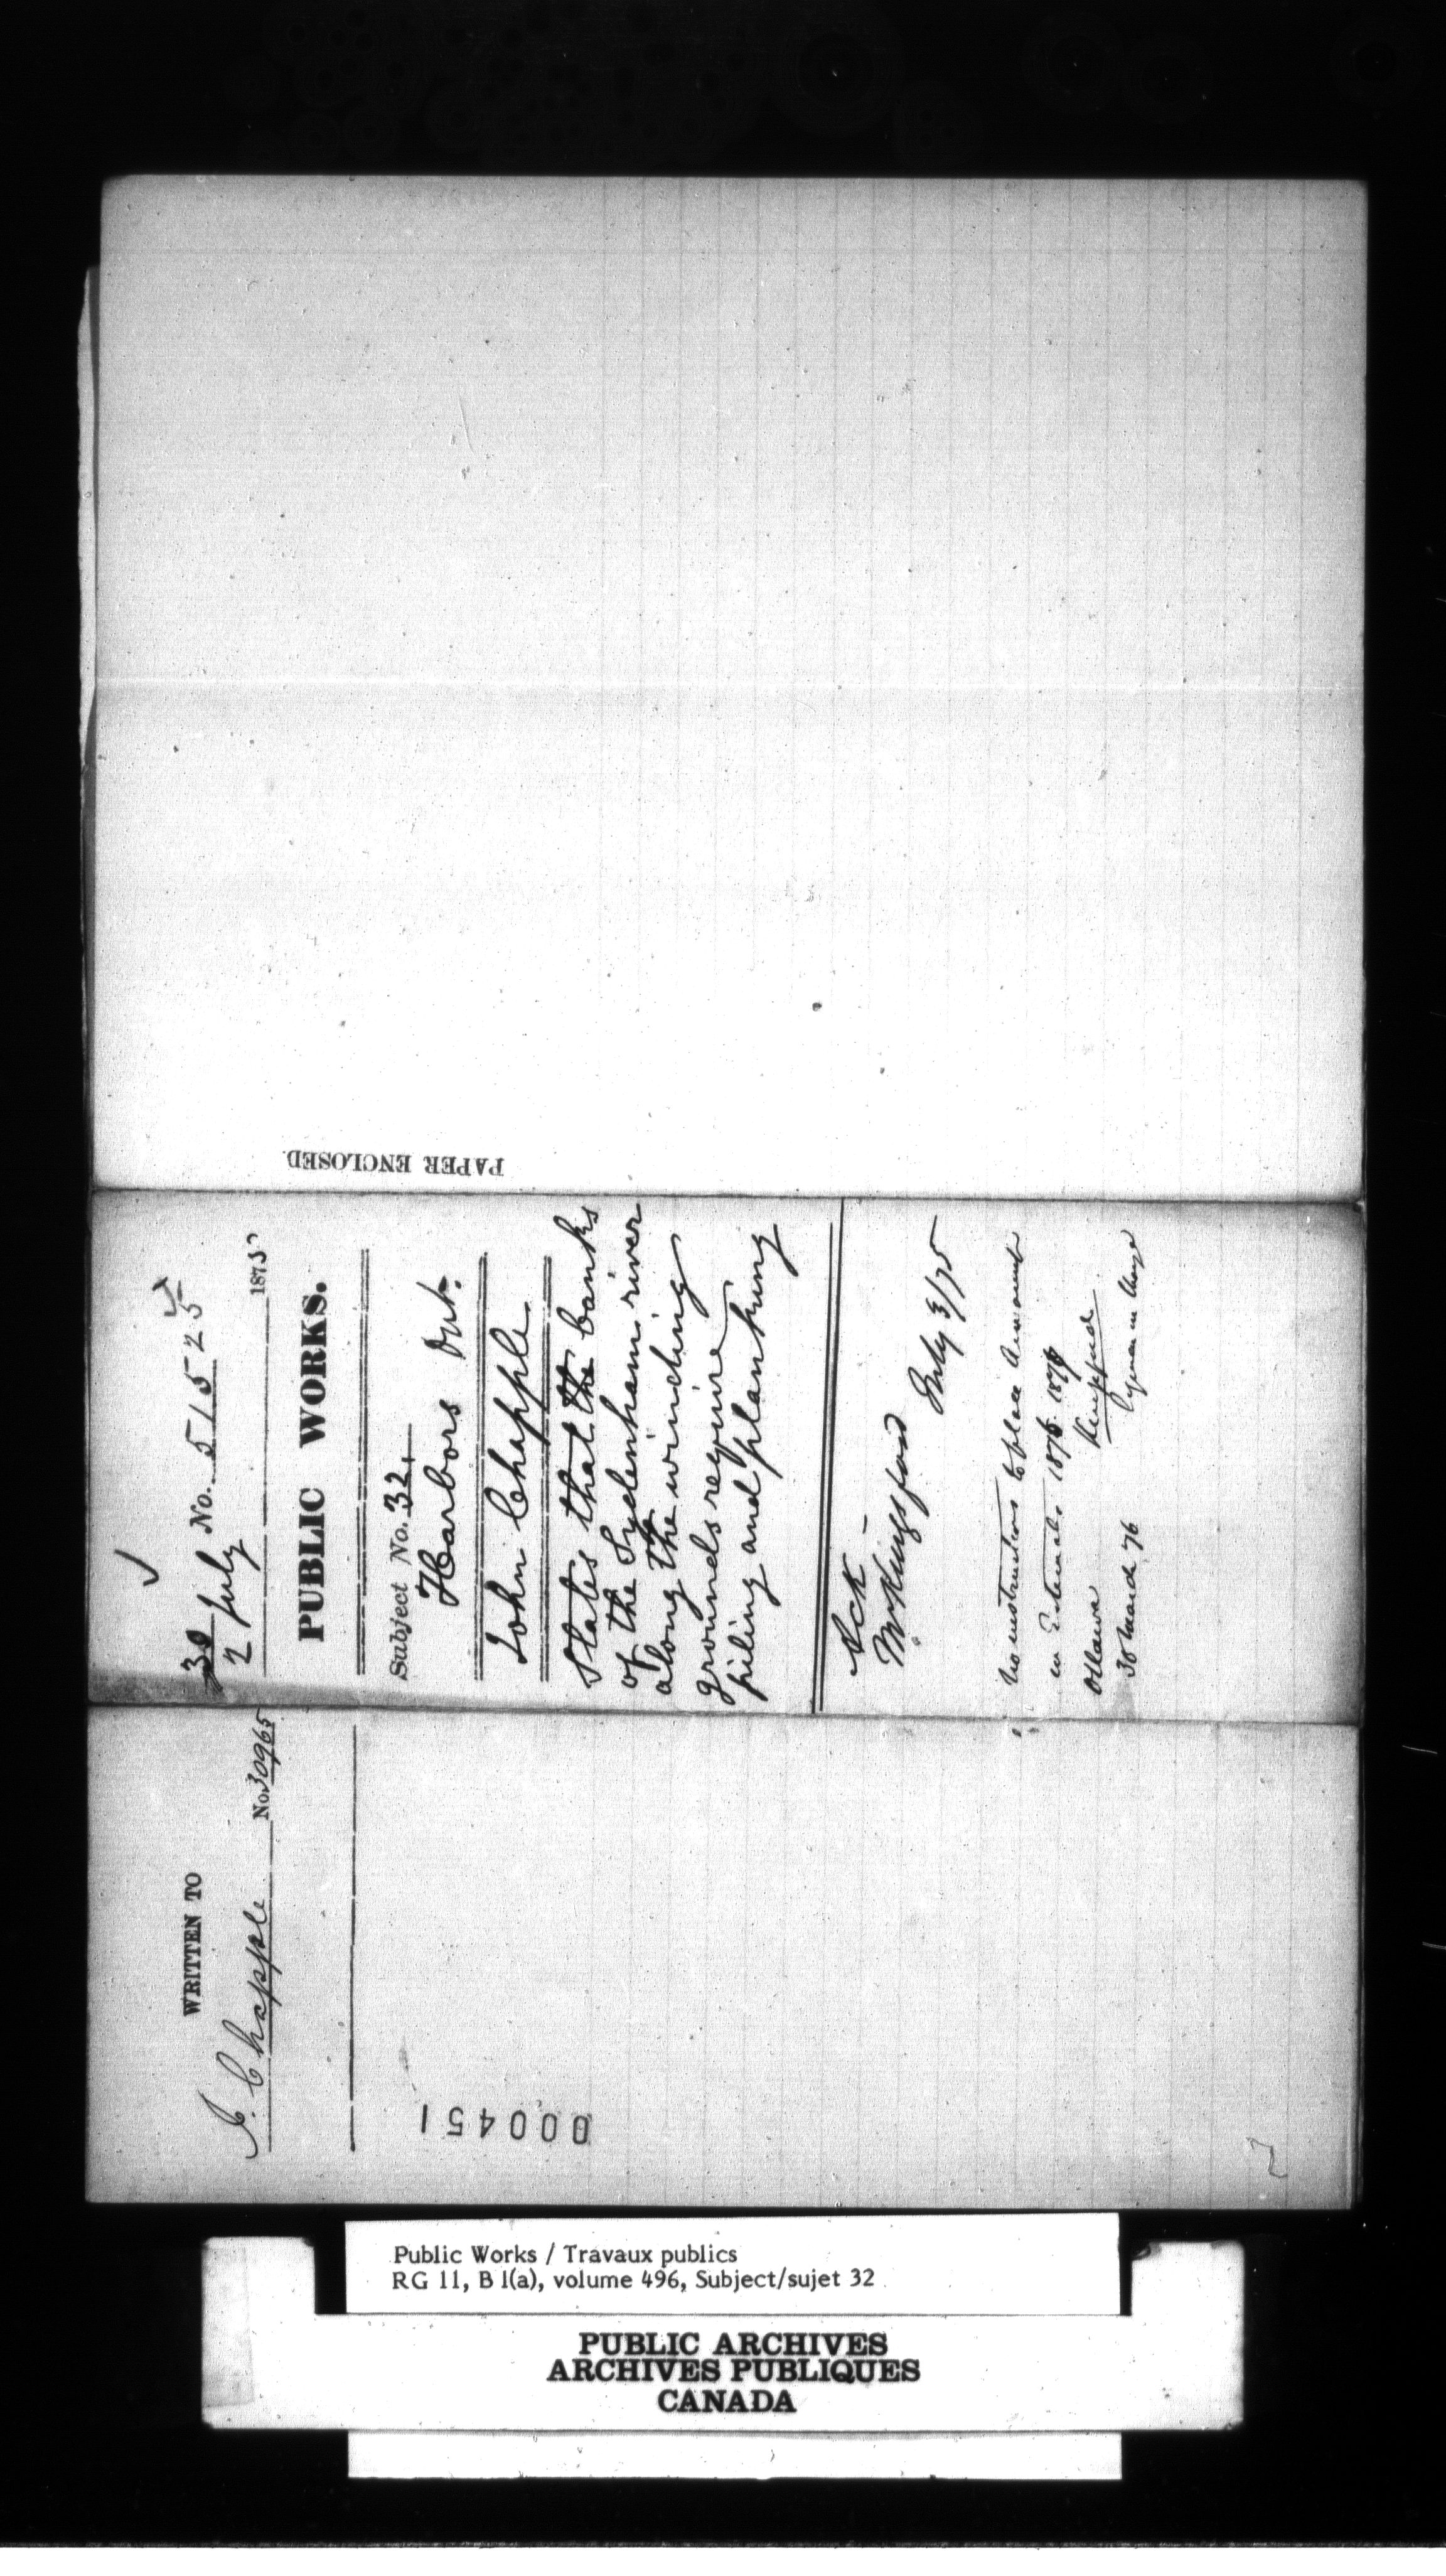 PAPER ENCLOSED.
✓
30 No. 51525
2 July 1875
PUBLIC WORKS.
Subject No. 32.
Harbors Ont.
John Chapple
States that the banks
of the Sydenham river
along the winding
grounds require
piling and planking
Ack –
W Kingsford
July 3/75
No instructions to place amount
in Estimates 1876 1877
Ottawa
30 March 76
WRITTEN TO
J. Chapple No. 30965
000451
2
Public Works / Travaux publics
RG 11, B 1(a), volume 496, Subject/sujet 32
PUBLIC ARCHIVES
ARCHIVES PUBLIQUES
CANADA